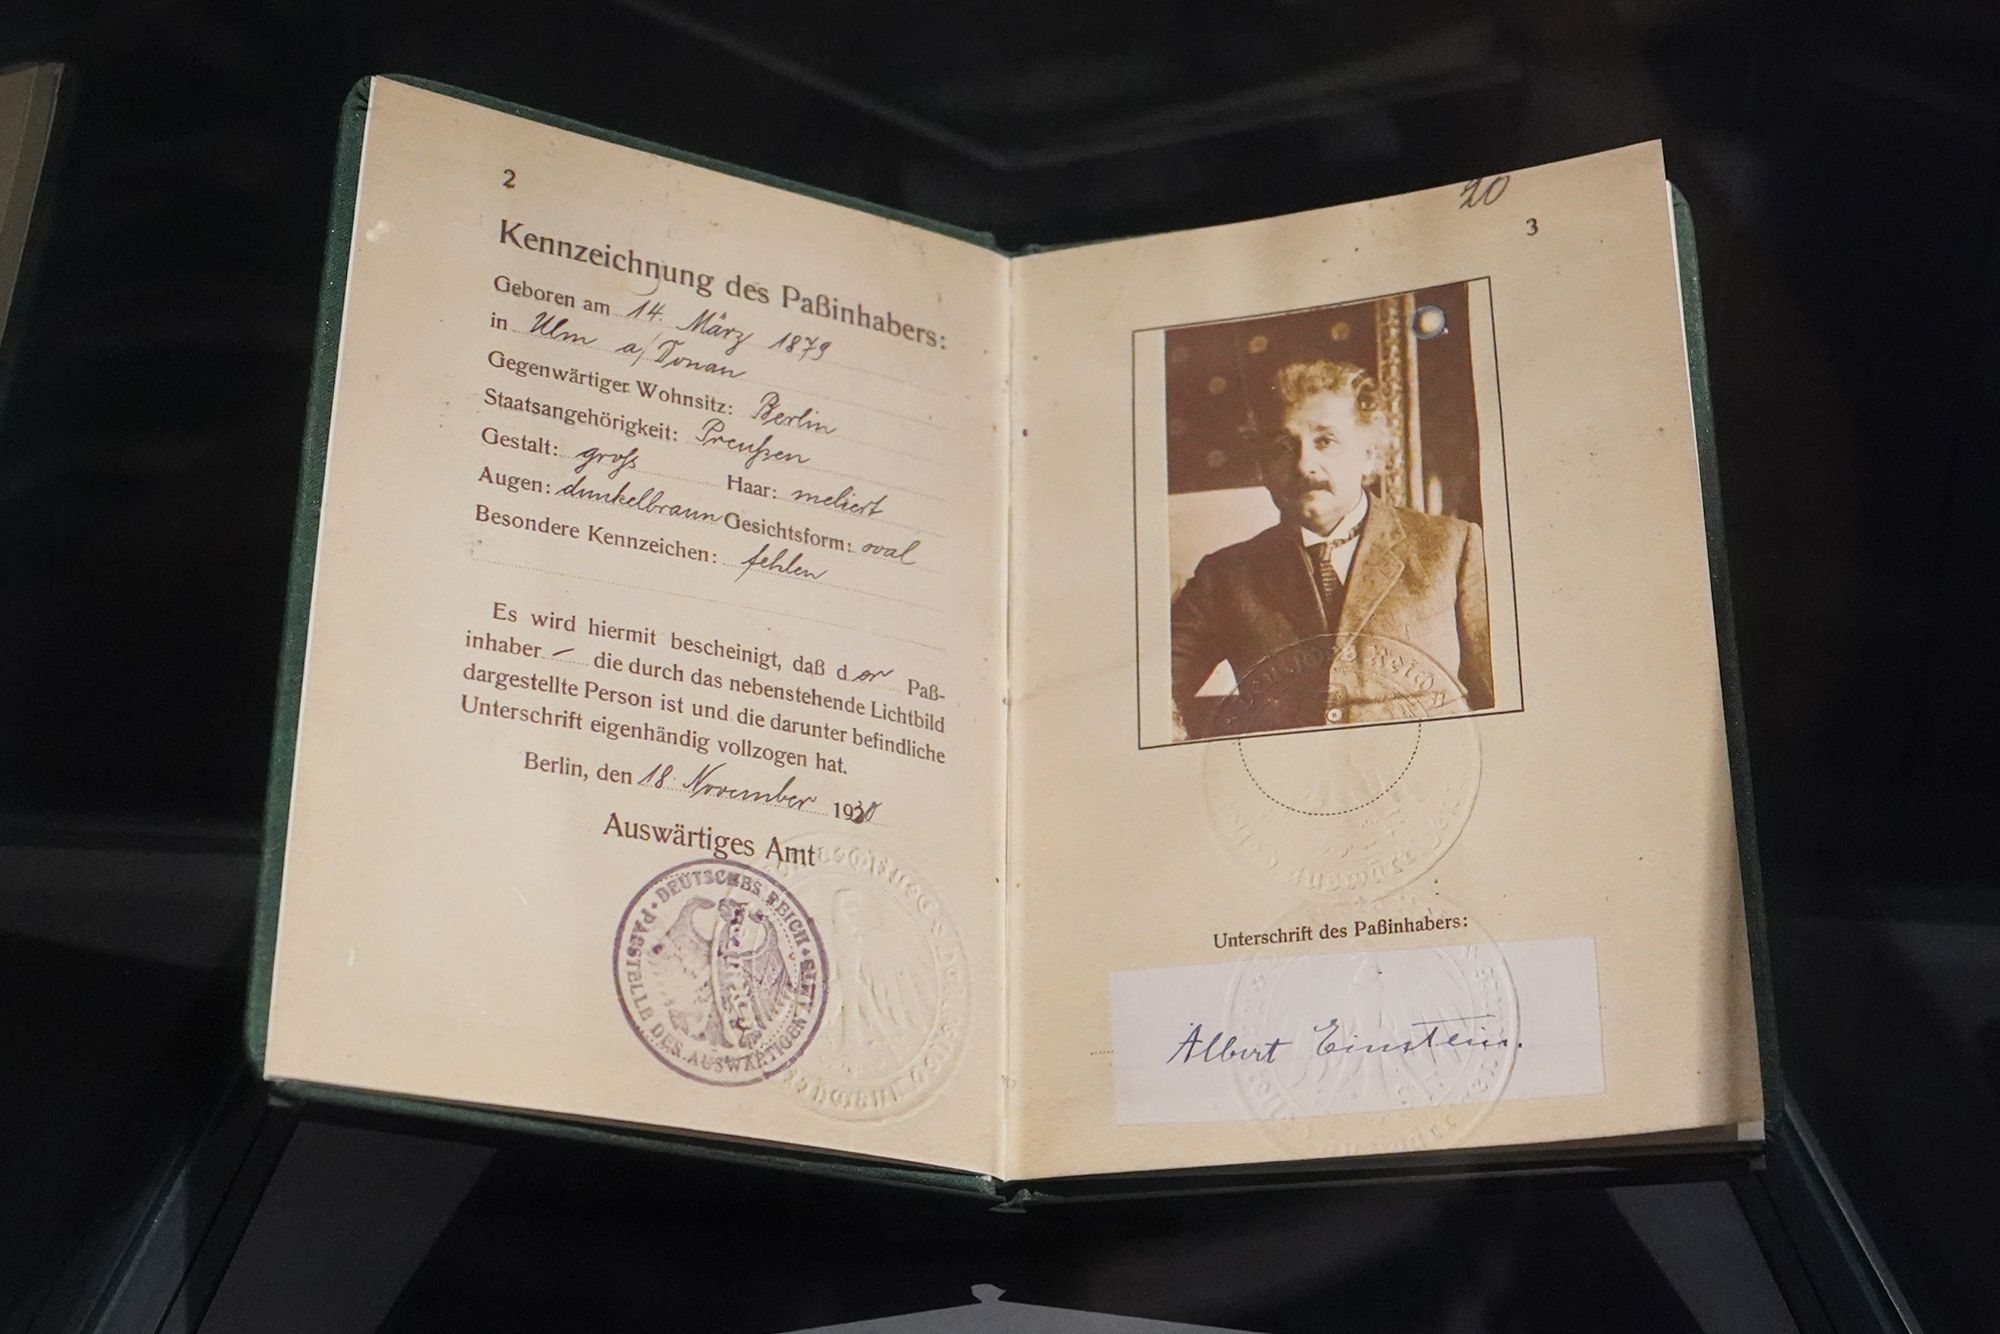 2
Kennzeichnung des Paßinhabers:
Geboren am 14. März 1879
in Ulm a/Donau
Gegenwärtiger Wohnsitz: Berlin
Staatsangehörigkeit: Preußen
Gestalt: groß Haar: meliert
Augen: dunkelbraun Gesichtsform: oval
Besondere Kennzeichen: fehlen
Es wird hiermit bescheinigt, daß der Paß-
inhaber – die durch das nebenstehende Lichtbild
dargestellte Person ist und die darunter befindliche
Unterschrift eigenhändig vollzogen hat.
Berlin, den 18. November 1930
Auswärtiges Amt
DEUTSCHES REICH
PASSSTELLE DES AUSWÄRTIGEN AMTS
20
3
Unterschrift des Paßinhabers:
Albert Einstein.